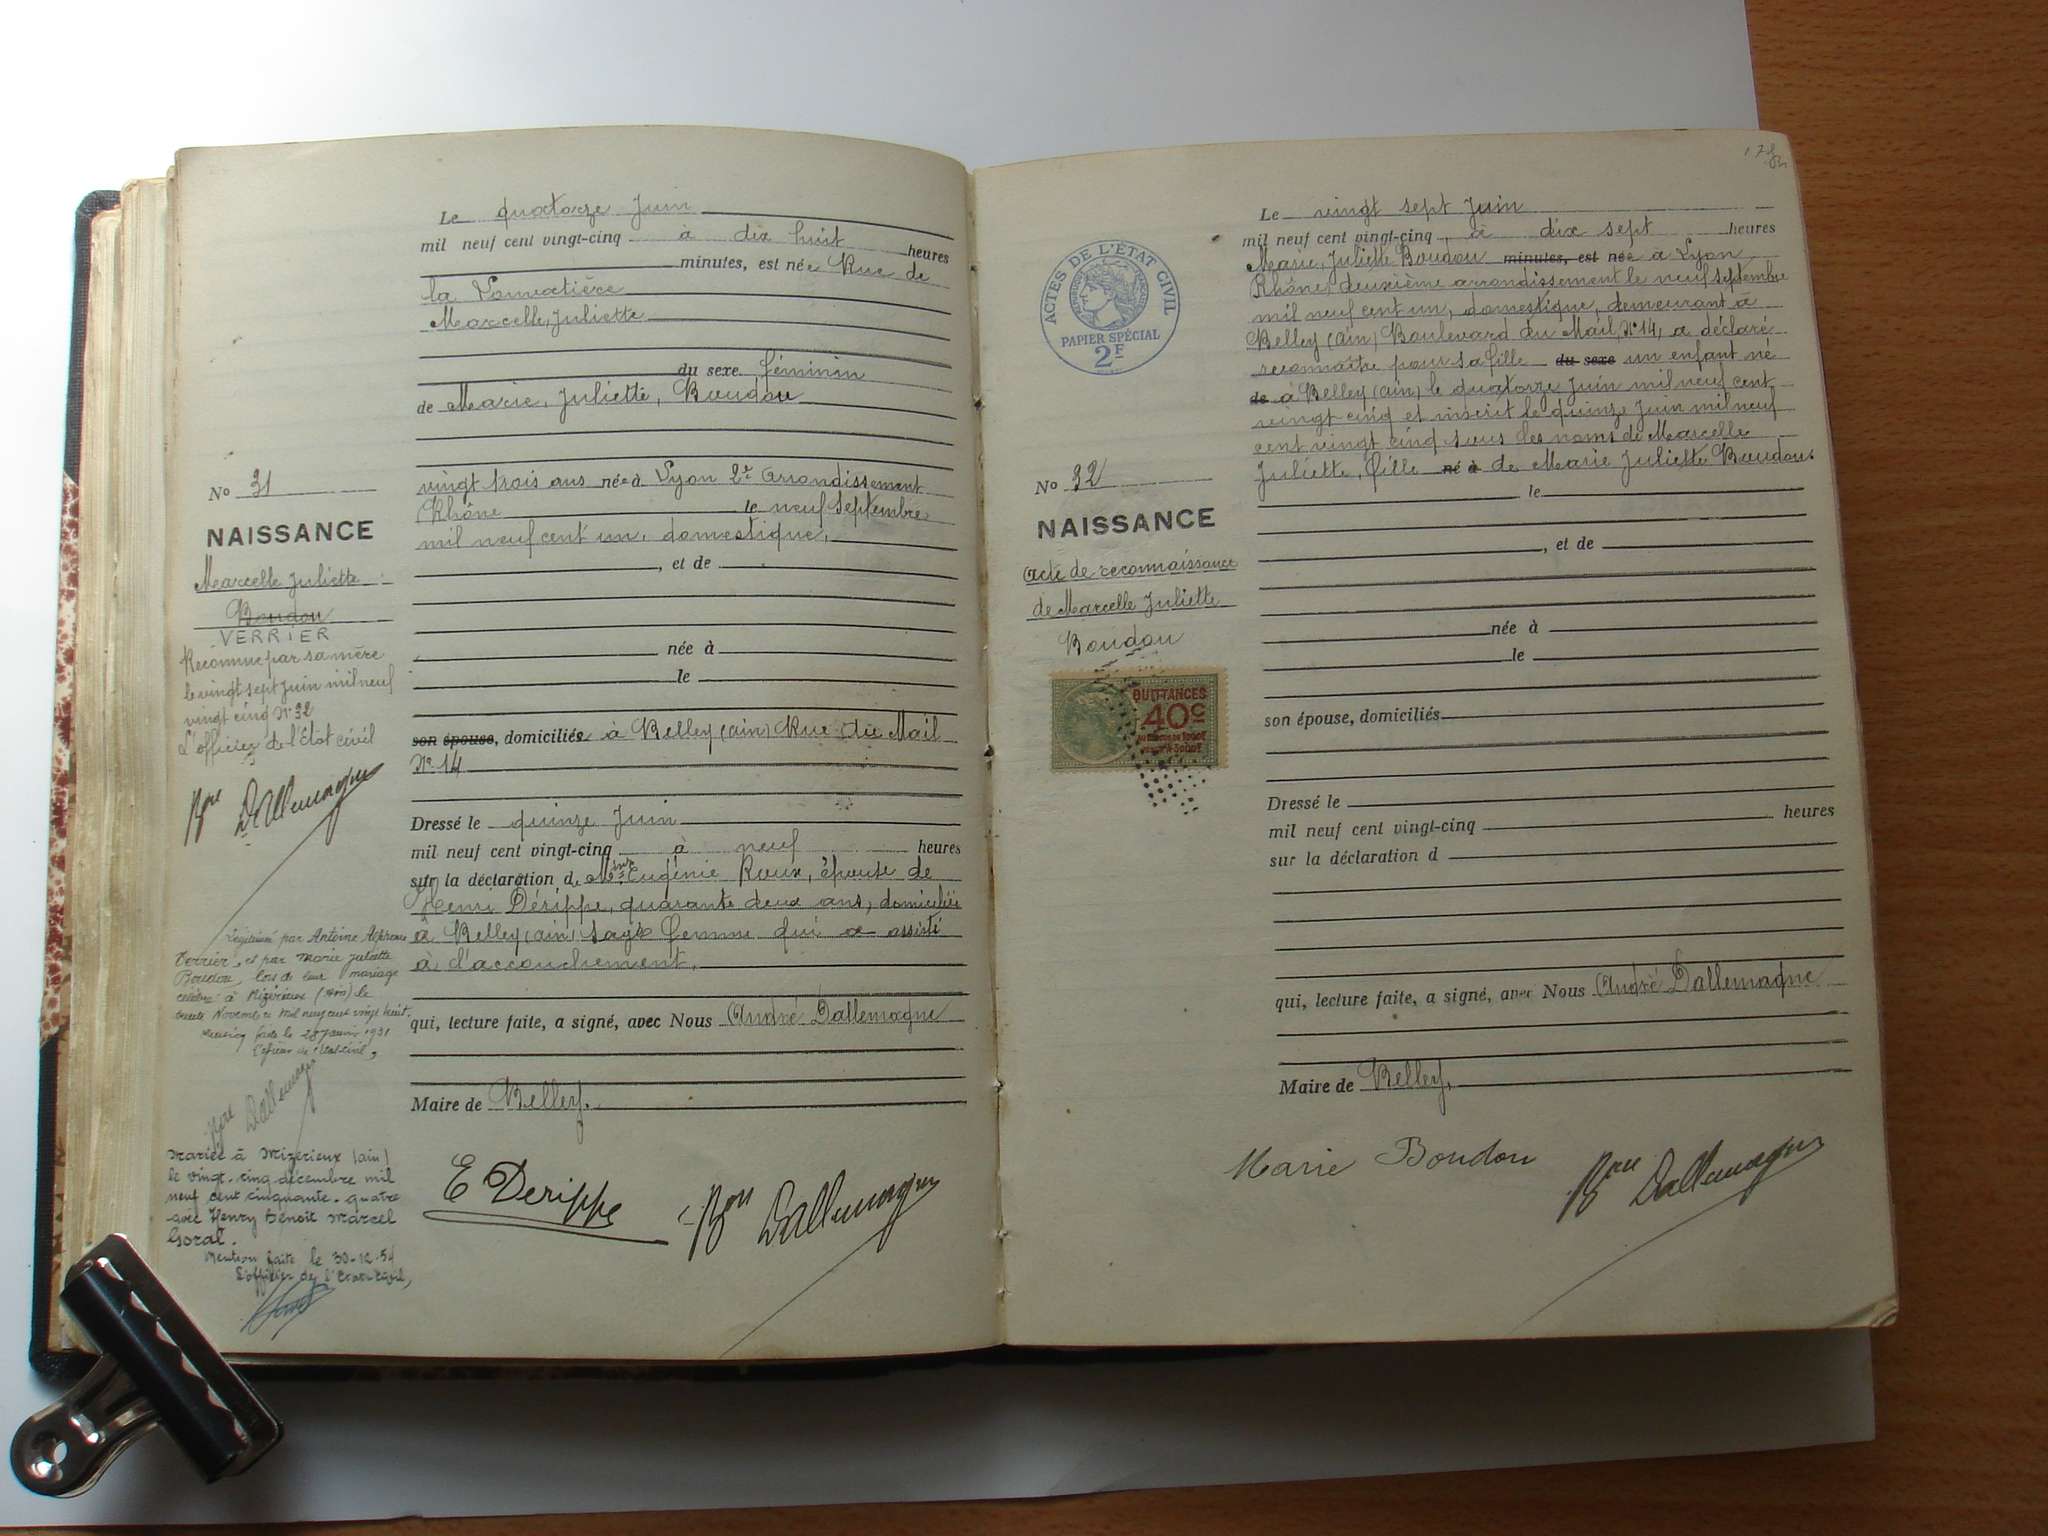 Le quatorze Juin
mil neuf cent vingt-cinq à dix huit heures
minutes, est née Rue de
la
Marcelle, Juliette
du sexe féminin
de Marie, Juliette, Boudou
vingt trois ans née à Lyon 2e Arrondissement
Rhône le neuf Septembre
mil neuf cent un, domestique,
, et de
née à
le
son épouse, domiciliés à Belley (ain) Rue du Mail
N° 14
Dressé le quinze Juin
mil neuf cent vingt-cinq à neuf heures
sur la déclaration de Eugénie Roux, épouse de
Henri Dérippe, quarante deux ans, domiciliée
à Belley (ain) sage femme qui a assisté
à l'accouchement.
qui, lecture faite, a signé, avec Nous André Dallemagne
Maire de Belley.
E Derippe Bon Dallemagne
No 31
NAISSANCE
Marcelle Juliette
Boudou
VERRIER
Reconnue par sa mère
le vingt sept Juin mil neuf
vingt cinq N° 32
L'officier de l'état civil
Bon Dallemagne
Légitimée par Antoine Alphonse
Verrier et par Marie Juliette
Boudou, lors de leur mariage
célébré à Mizérieux (Ain) le
Novembre mil neuf cent vingt huit.
faite le 28 Janvier 1931
L'officier de l'Etat-civil,
Bon Dallemagne
Mariée à Mizérieux (ain)
le vingt-cinq décembre mil
neuf cent cinquante-quatre
avec Henry Benoît Marcel
Goral.
Mention faite le 30-12-54
L'officier de l'Etat-Civil,
Le vingt sept Juin
mil neuf cent vingt-cinq, à dix sept heures
Marie, Juliette Boudou minutes, est née à Lyon
Rhône, deuxième arrondissement le neuf septembre
mil neuf cent un, domestique, demeurant à
Belley (ain) Boulevard du Mail, N° 14, a déclaré
reconnaître pour sa fille du sexe un enfant né
de à Belley (ain) le quatorze Juin mil neuf cent
vingt cinq et inscrit le quinze Juin mil neuf
cent vingt cinq sous les noms de Marcelle
Juliette, fille né à de Marie Juliette Boudou.
le
, et de
née à
le
son épouse, domiciliés
Dressé le
mil neuf cent vingt-cinq heures
sur la déclaration d
qui, lecture faite, a signé, avec Nous André Dallemagne
Maire de Belley.
Marie Boudou Bon Dallemagne
ACTES DE L'ÉTAT CIVIL
PAPIER SPÉCIAL
2F
No 32
NAISSANCE
Acte de reconnaissance
de Marcelle Juliette
Boudou
QUITTANCES
40c